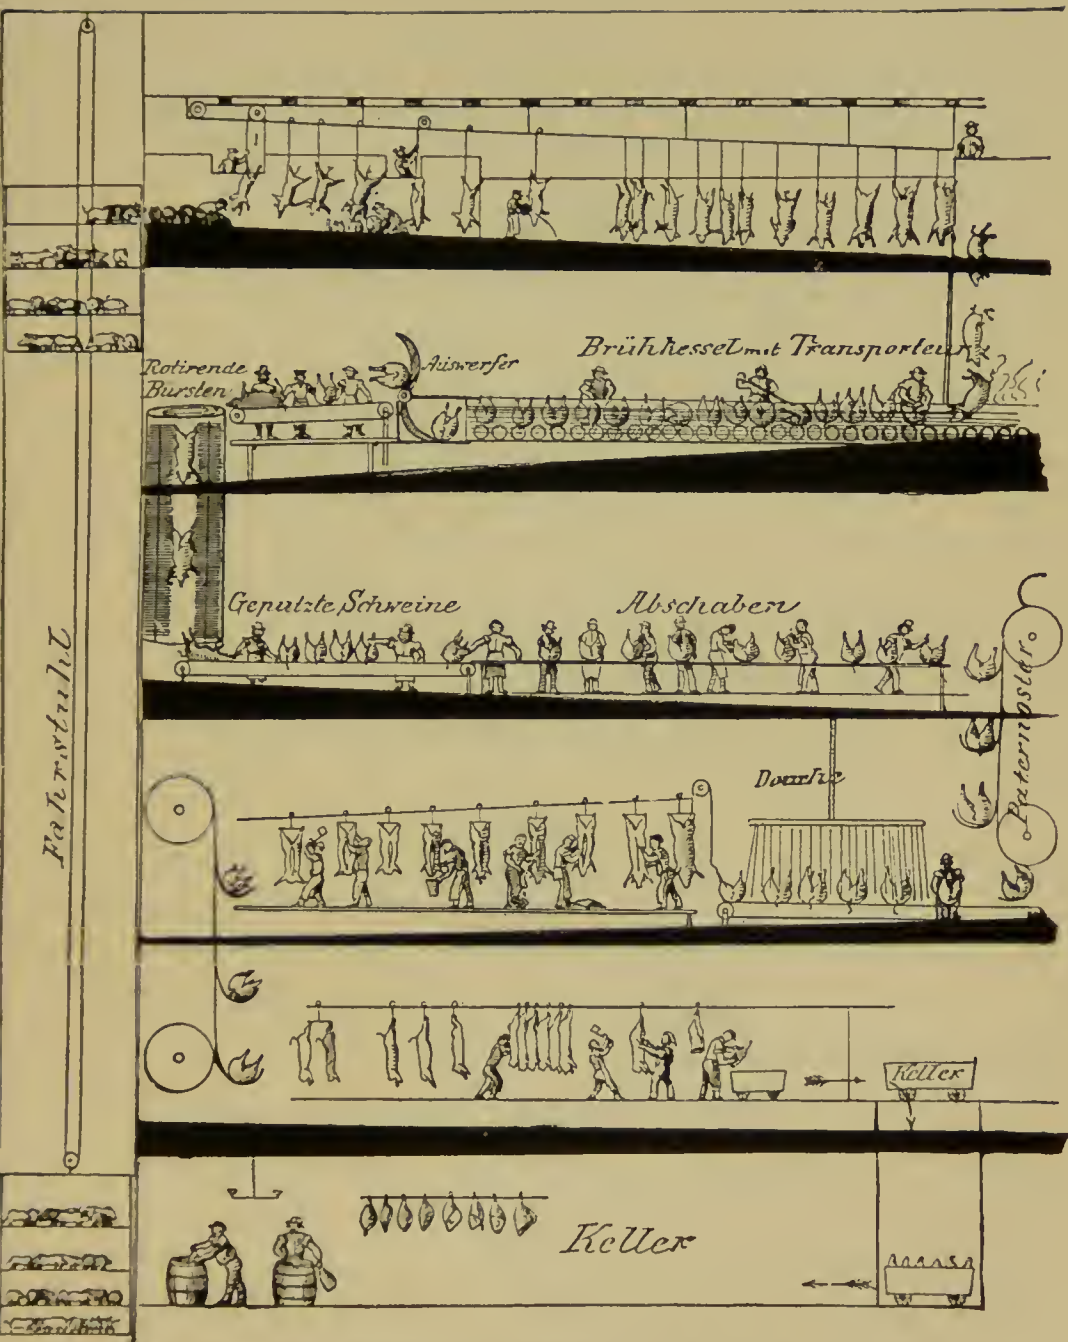 Rotirende
Bürsten
Auswerfer
Brühkessel mit Transporteur
Geputzte Schweine
Abschaben
Paternoster
Fahrstuhl
Douche
Keller
Keller